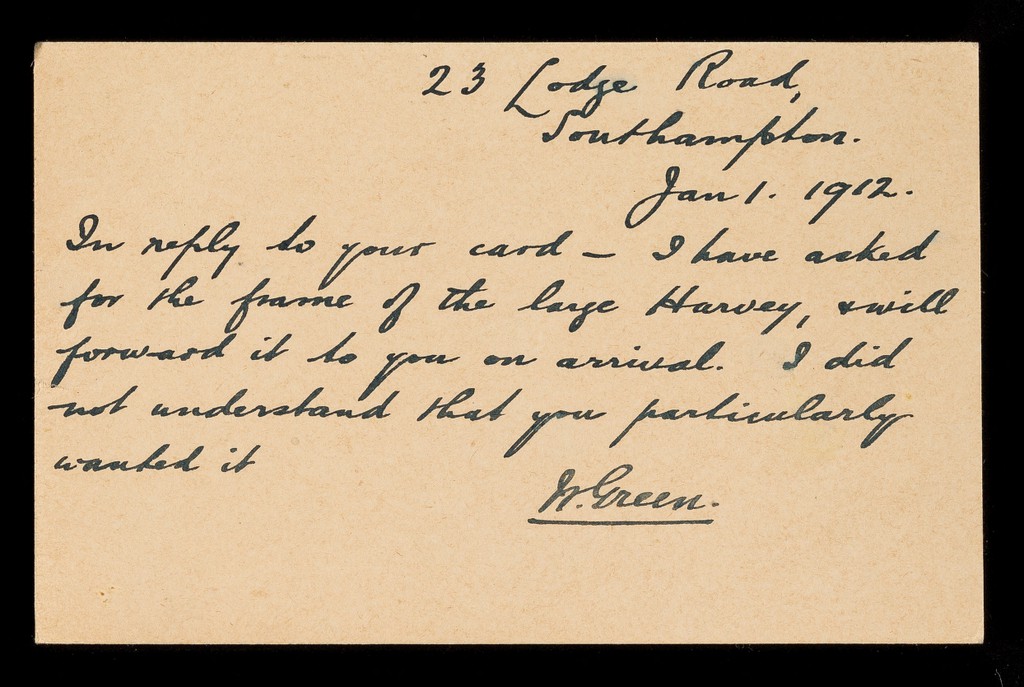 23 Lodge Road,
Southampton.
Jan 1. 1912.
In reply to your card – I have asked
for the frame of the large Harvey, & will
forward it to you on arrival. I did
not understand that you particularly
wanted it
W. Green.